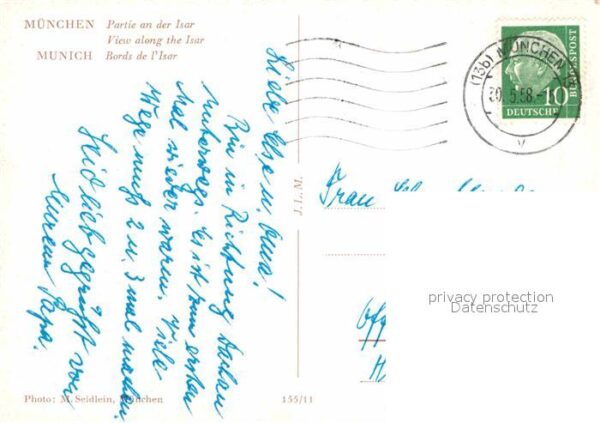 MÜNCHEN Partie an der Isar
View along the Isar
MUNICH Bords de l'Isar
(13b) MÜNCHEN
30.5.58.-
v
10
DEUTSCHE
BUNDESPOST
Liebe Else u. Oma!
Bin in Richtung Dachau
unterwegs. Es ist zum ersten
Mal wieder warm. Viele
Wege muß 2 u. 3 mal machen.
Seid lieb gegrüßt von
Eurem Papa.
J.L.M.
Frau
privacy protection
Datenschutz
Photo: M. Seidlein, München
155/11